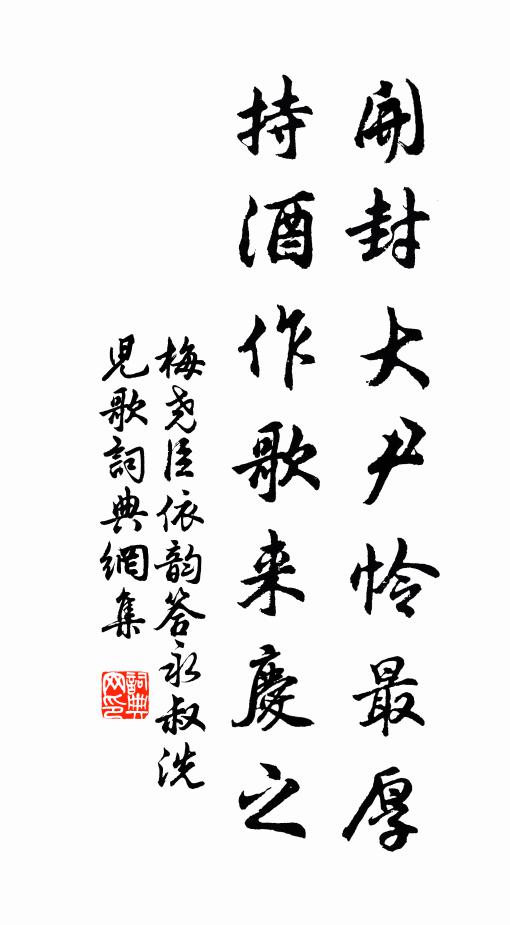 開封大尹怜最厚
持酒作歌来慶之
梅尧臣依韵答永叔洗
児歌詞典網集
詞典网印